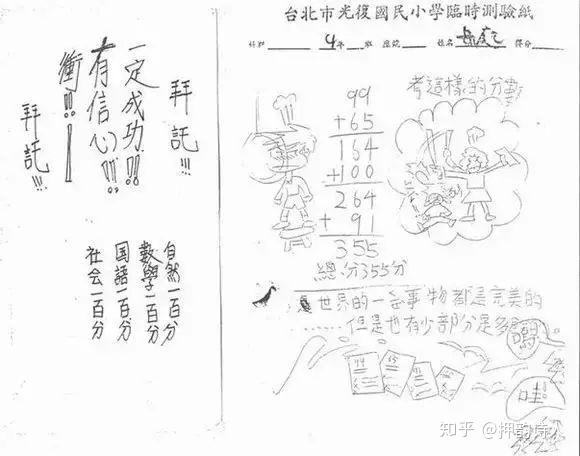 拜託!!!
一定成功!!
有信心!!!
衝!!!
拜託!!!
自然一百分
數學一百分
国語一百分
社会一百分
台北市光復國民小學臨時測驗紙
科別 4年 班 座號 姓名 得分
考這樣的分數
99
+65
164
+100
264
+ 91
355
總分355分
世界的一些事物都是完美的
……但是也有少部分是多
嗚
哇!!
知乎 @押韵